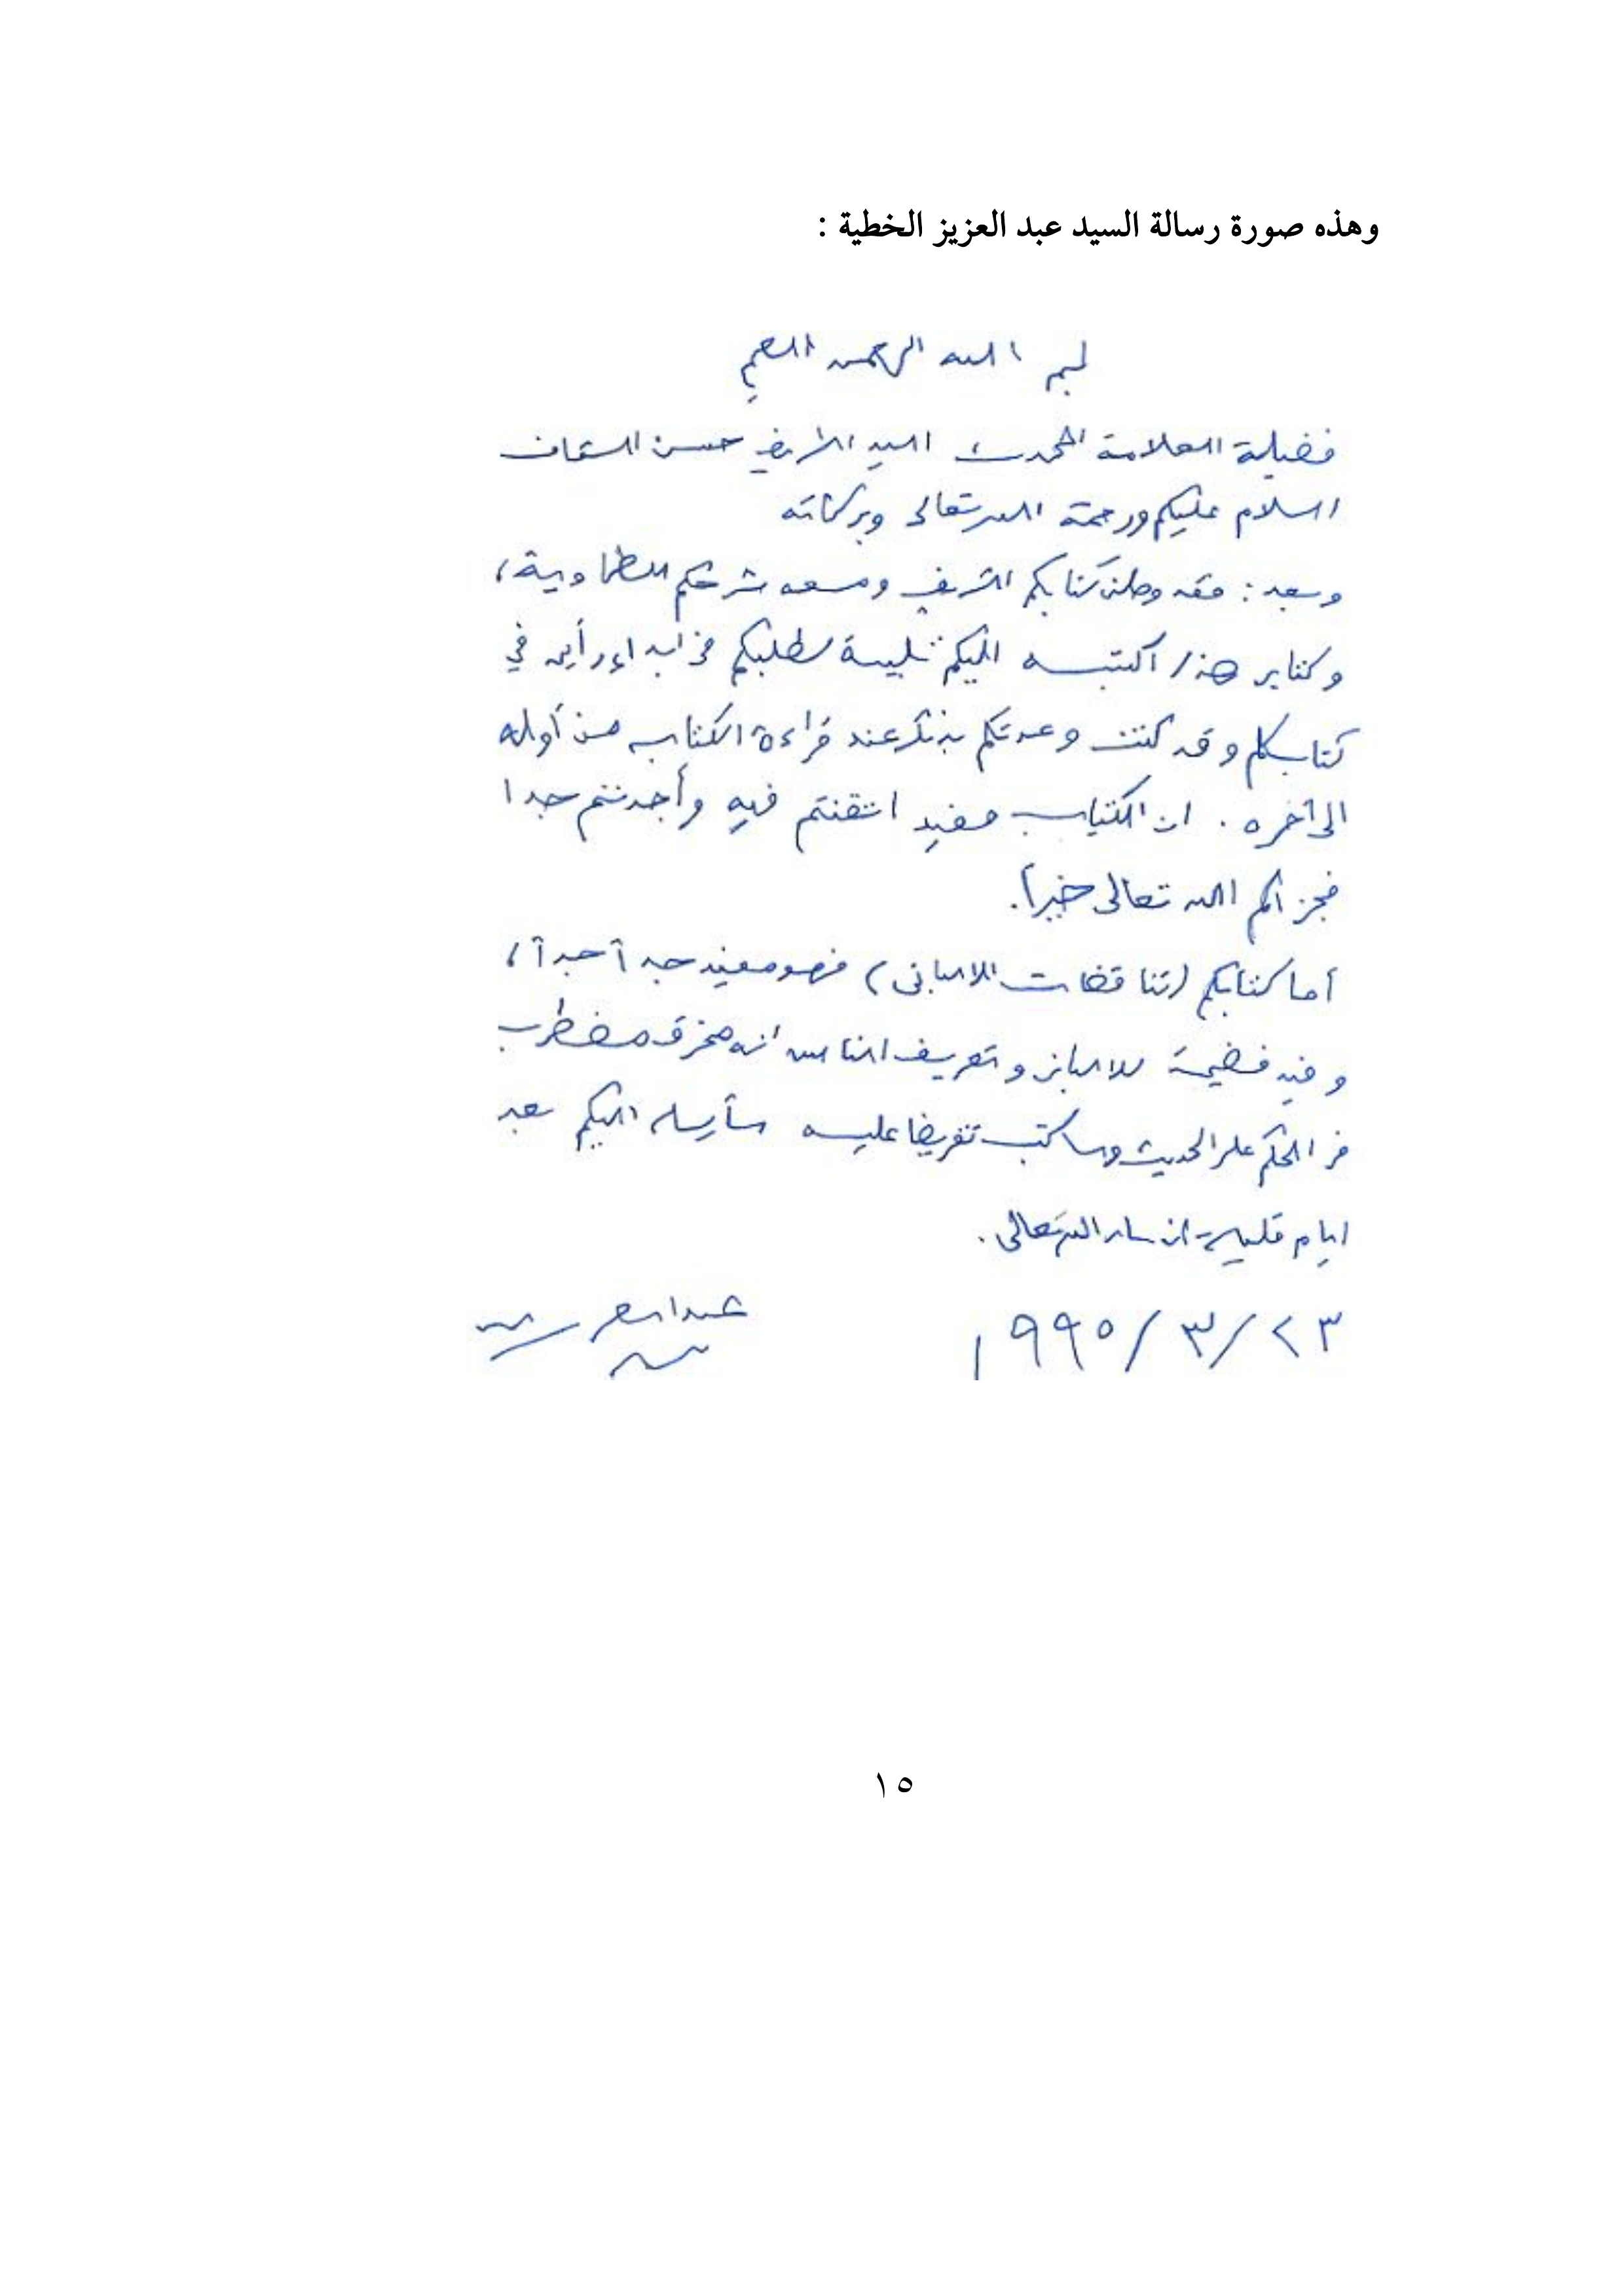 وهذه صورة رسالة السيد عبد العزيز الخطية :
بسم الله الرحمن الرحيم
فضيلة العلامة المحدث السيد الشريف حسن السقاف
السلام عليكم ورحمة الله تعالى وبركاته
وبعد : فقد وصلني كتابكم الشريف ومعه شرحكم للطحاوية ،
وكتابي هذا أكتبه إليكم تلبية لطلبكم في ابداء رأيي في
كتابكم وقد كنت وعدتكم بذلك عند قراءة الكتاب من أوله
الى آخره . ان الكتاب مفيد اتقنتم فيه وأجدتم جدا
فجزاكم الله تعالى خيراً .
أما كتابكم (تناقضات الالباني) فهو مفيد جداً جداً ،
وفيه فضيحة للالباني وتعريف الناس انه مخرق مضطرب
في الحكم على الحديث وسأكتب تقريضا عليه سأرسله اليكم بعد
ايام قليلة ان شاء الله تعالى .
٢٣/٣/١٩٩٥
عبد العزيز
١٥